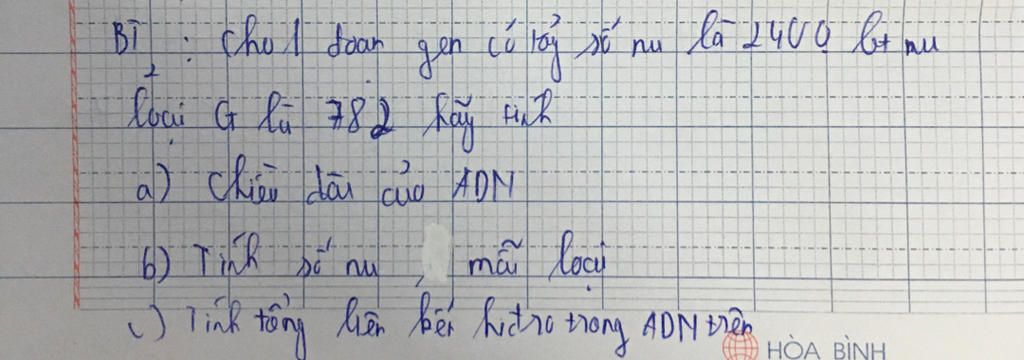 BT : Cho 1 đoạn gen có tổng số nu là 2400 bt nu
loại G là 782 hãy tính
a) Chiều dài của ADN
b) Tính số nu mỗi loại
c) Tính tổng liên kết hiđro trong ADN trên
HÒA BÌNH